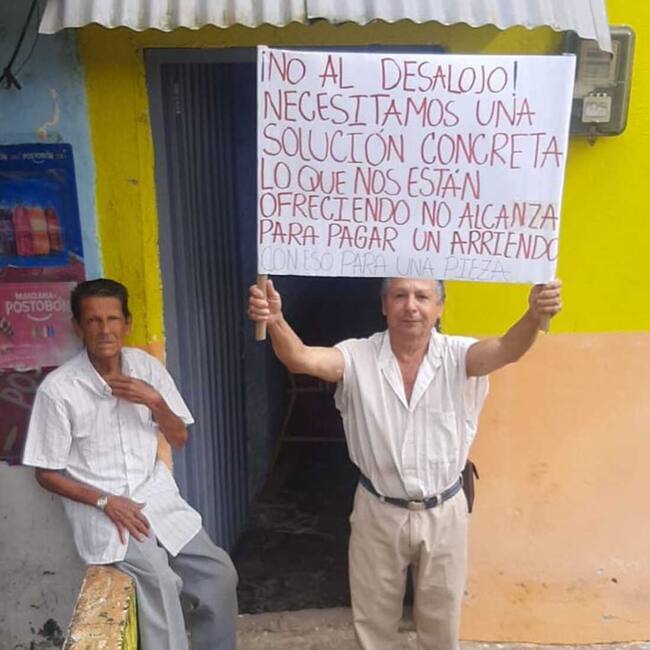 ¡NO AL DESALOJO!
NECESITAMOS UNA
SOLUCIÓN CONCRETA
LO QUE NOS ESTÁN
OFRECIENDO NO ALCANZA
PARA PAGAR UN ARRIENDO
CON ESO PARA UNA PIEZA
POSTOBÓN
MANZANA
POSTOBÓN
POS